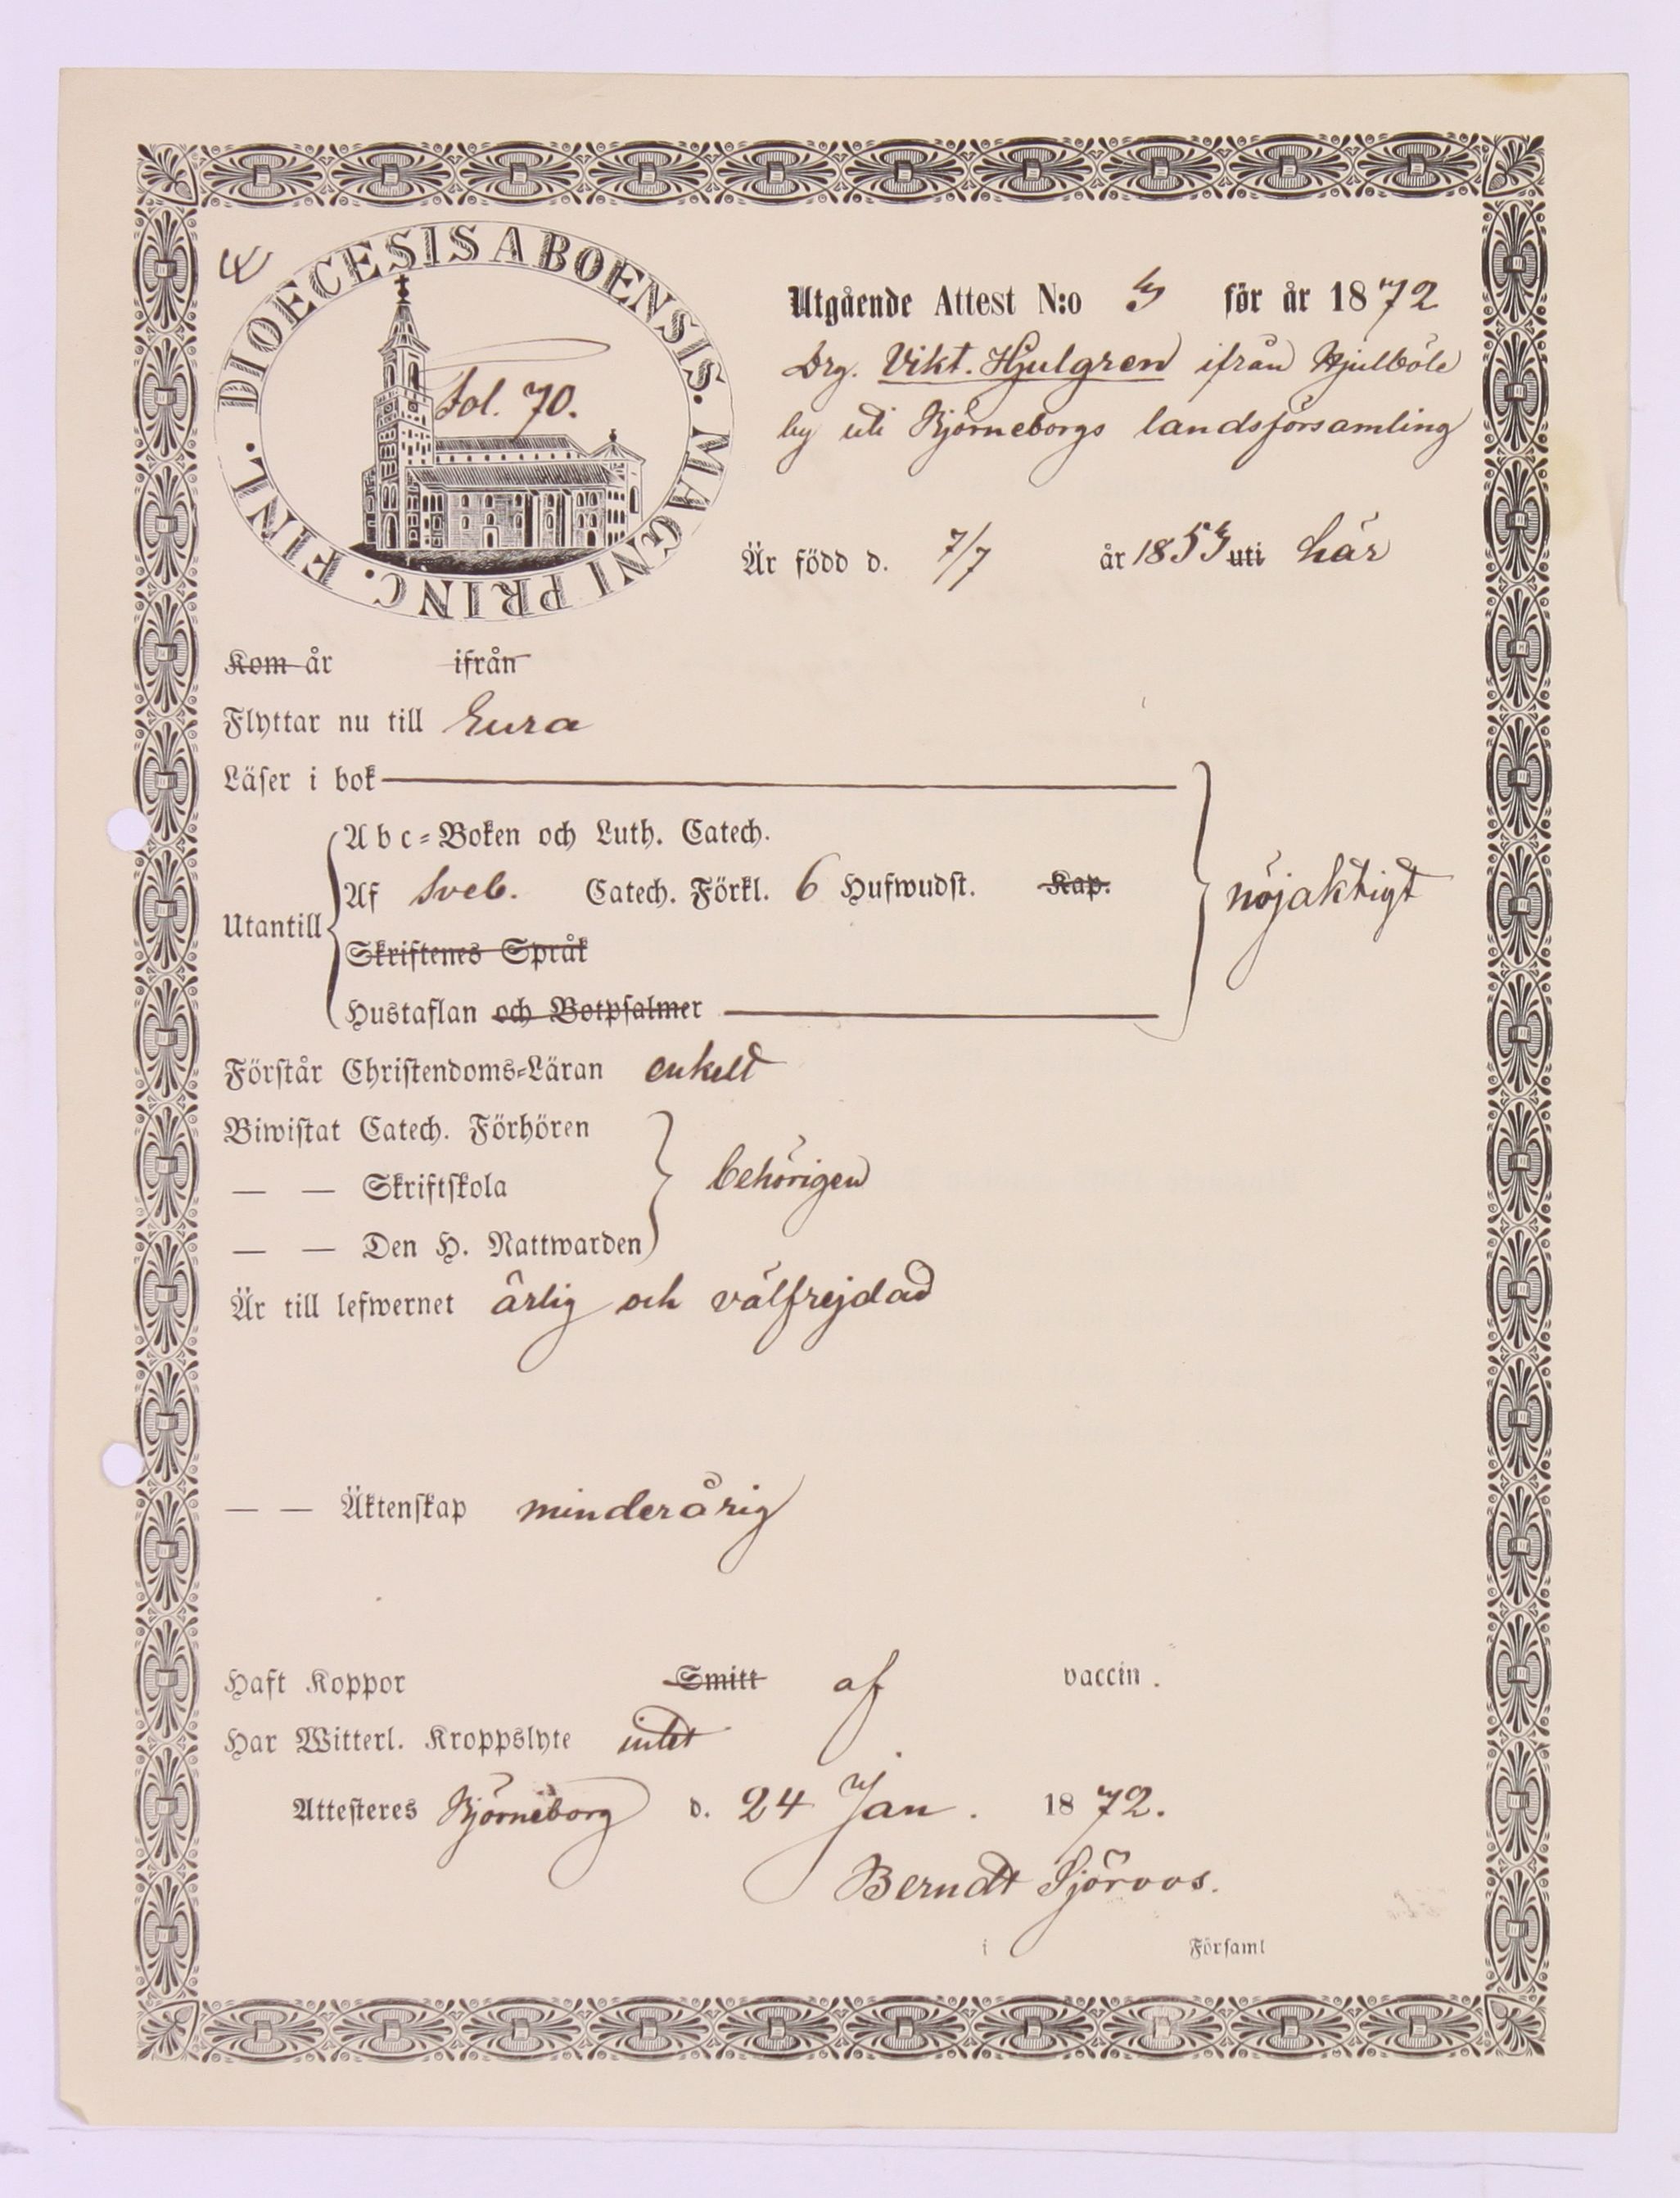 DIOECESIS ABOENSIS. MAGNI PRINC. FINL.
Fol. 70.
Utgående Attest N:o 3 för år 1872
Drg. Vikt. Hjulgren ifrån Hjulböle
by uti Björneborgs landsförsamling
Är född d. 7/7 år 1853 uti här
Kom år ifrån
Flyttar nu till Eura
Läser i bok
Abc-Boken och Luth. Catech.
Af Sveb. Catech. Förkl. 6 Hufwudst. Kap.
nöjaktigt
Utantill
Skriftenes Språk
Hustaflan och Botpsalmer
Förstår Christendoms-Läran enkelt
Biwistat Catech. Förhören
— — Skriftskola behörigen
— — Den H. Nattwarden
Är till lefwernet ärlig och välfrejdad
— — Äktenskap minderårig
Haft Koppor Smitt af vaccin.
Har Witterl. Kroppslyte intet
Attesteres Björneborg d. 24 Jan. 1872.
Berndt Sjöroos.
i Församl